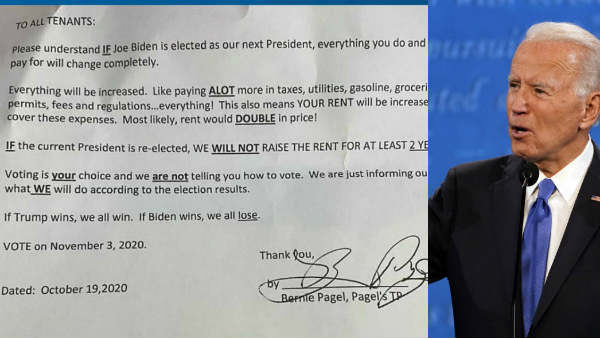 TO ALL TENANTS:
Please understand IF Joe Biden is elected as our next President, everything you do and
pay for will change completely.
Everything will be increased. Like paying ALOT more in taxes, utilities, gasoline, groceri
permits, fees and regulations...everything! This also means YOUR RENT will be increase
cover these expenses. Most likely, rent would DOUBLE in price!
IF the current President is re-elected, WE WILL NOT RAISE THE RENT FOR AT LEAST 2 YE
Voting is your choice and we are not telling you how to vote. We are just informing ou
what WE will do according to the election results.
If Trump wins, we all win. If Biden wins, we all lose.
VOTE on November 3, 2020.
Thank You,
by
Bernie Pagel, Pagel's TP
Dated: October 19,2020